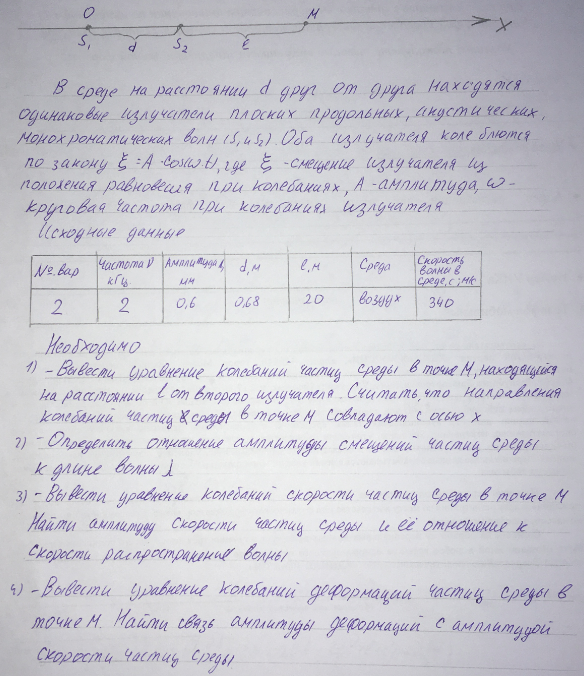 O M
S₁ d S₂ ℓ X
В среде на расстоянии d друг от друга находятся
одинаковые излучатели плоских продольных, акустических,
монохроматических волн (S₁ и S₂). Оба излучателя колеблются
по закону ξ = A·cos(ωt), где ξ - смещение излучателя из
положения равновесия при колебаниях, A - амплитуда, ω -
круговая частота при колебаниях излучателя
Исходные данные
№ вар Частота ν кГц Амплитуда, мм d, м ℓ, м Среда Скорость волны в среде, с; м/с
2 2 0,6 0,68 20 воздух 340
Необходимо
1) - Вывести уравнение колебаний частиц среды в точке М, находящейся
на расстоянии ℓ от второго излучателя. Считать, что направления
колебаний частиц среды в точке М совпадают с осью x
2) - Определить отношение амплитуды смещений частиц среды
к длине волны λ
3) - Вывести уравнение колебаний скорости частиц среды в точке М
Найти амплитуду скорости частиц среды и её отношение к
скорости распространение волны
4) - Вывести уравнение колебаний деформаций частиц среды в
точке М. Найти связь амплитуды деформаций с амплитудой
скорости частиц среды